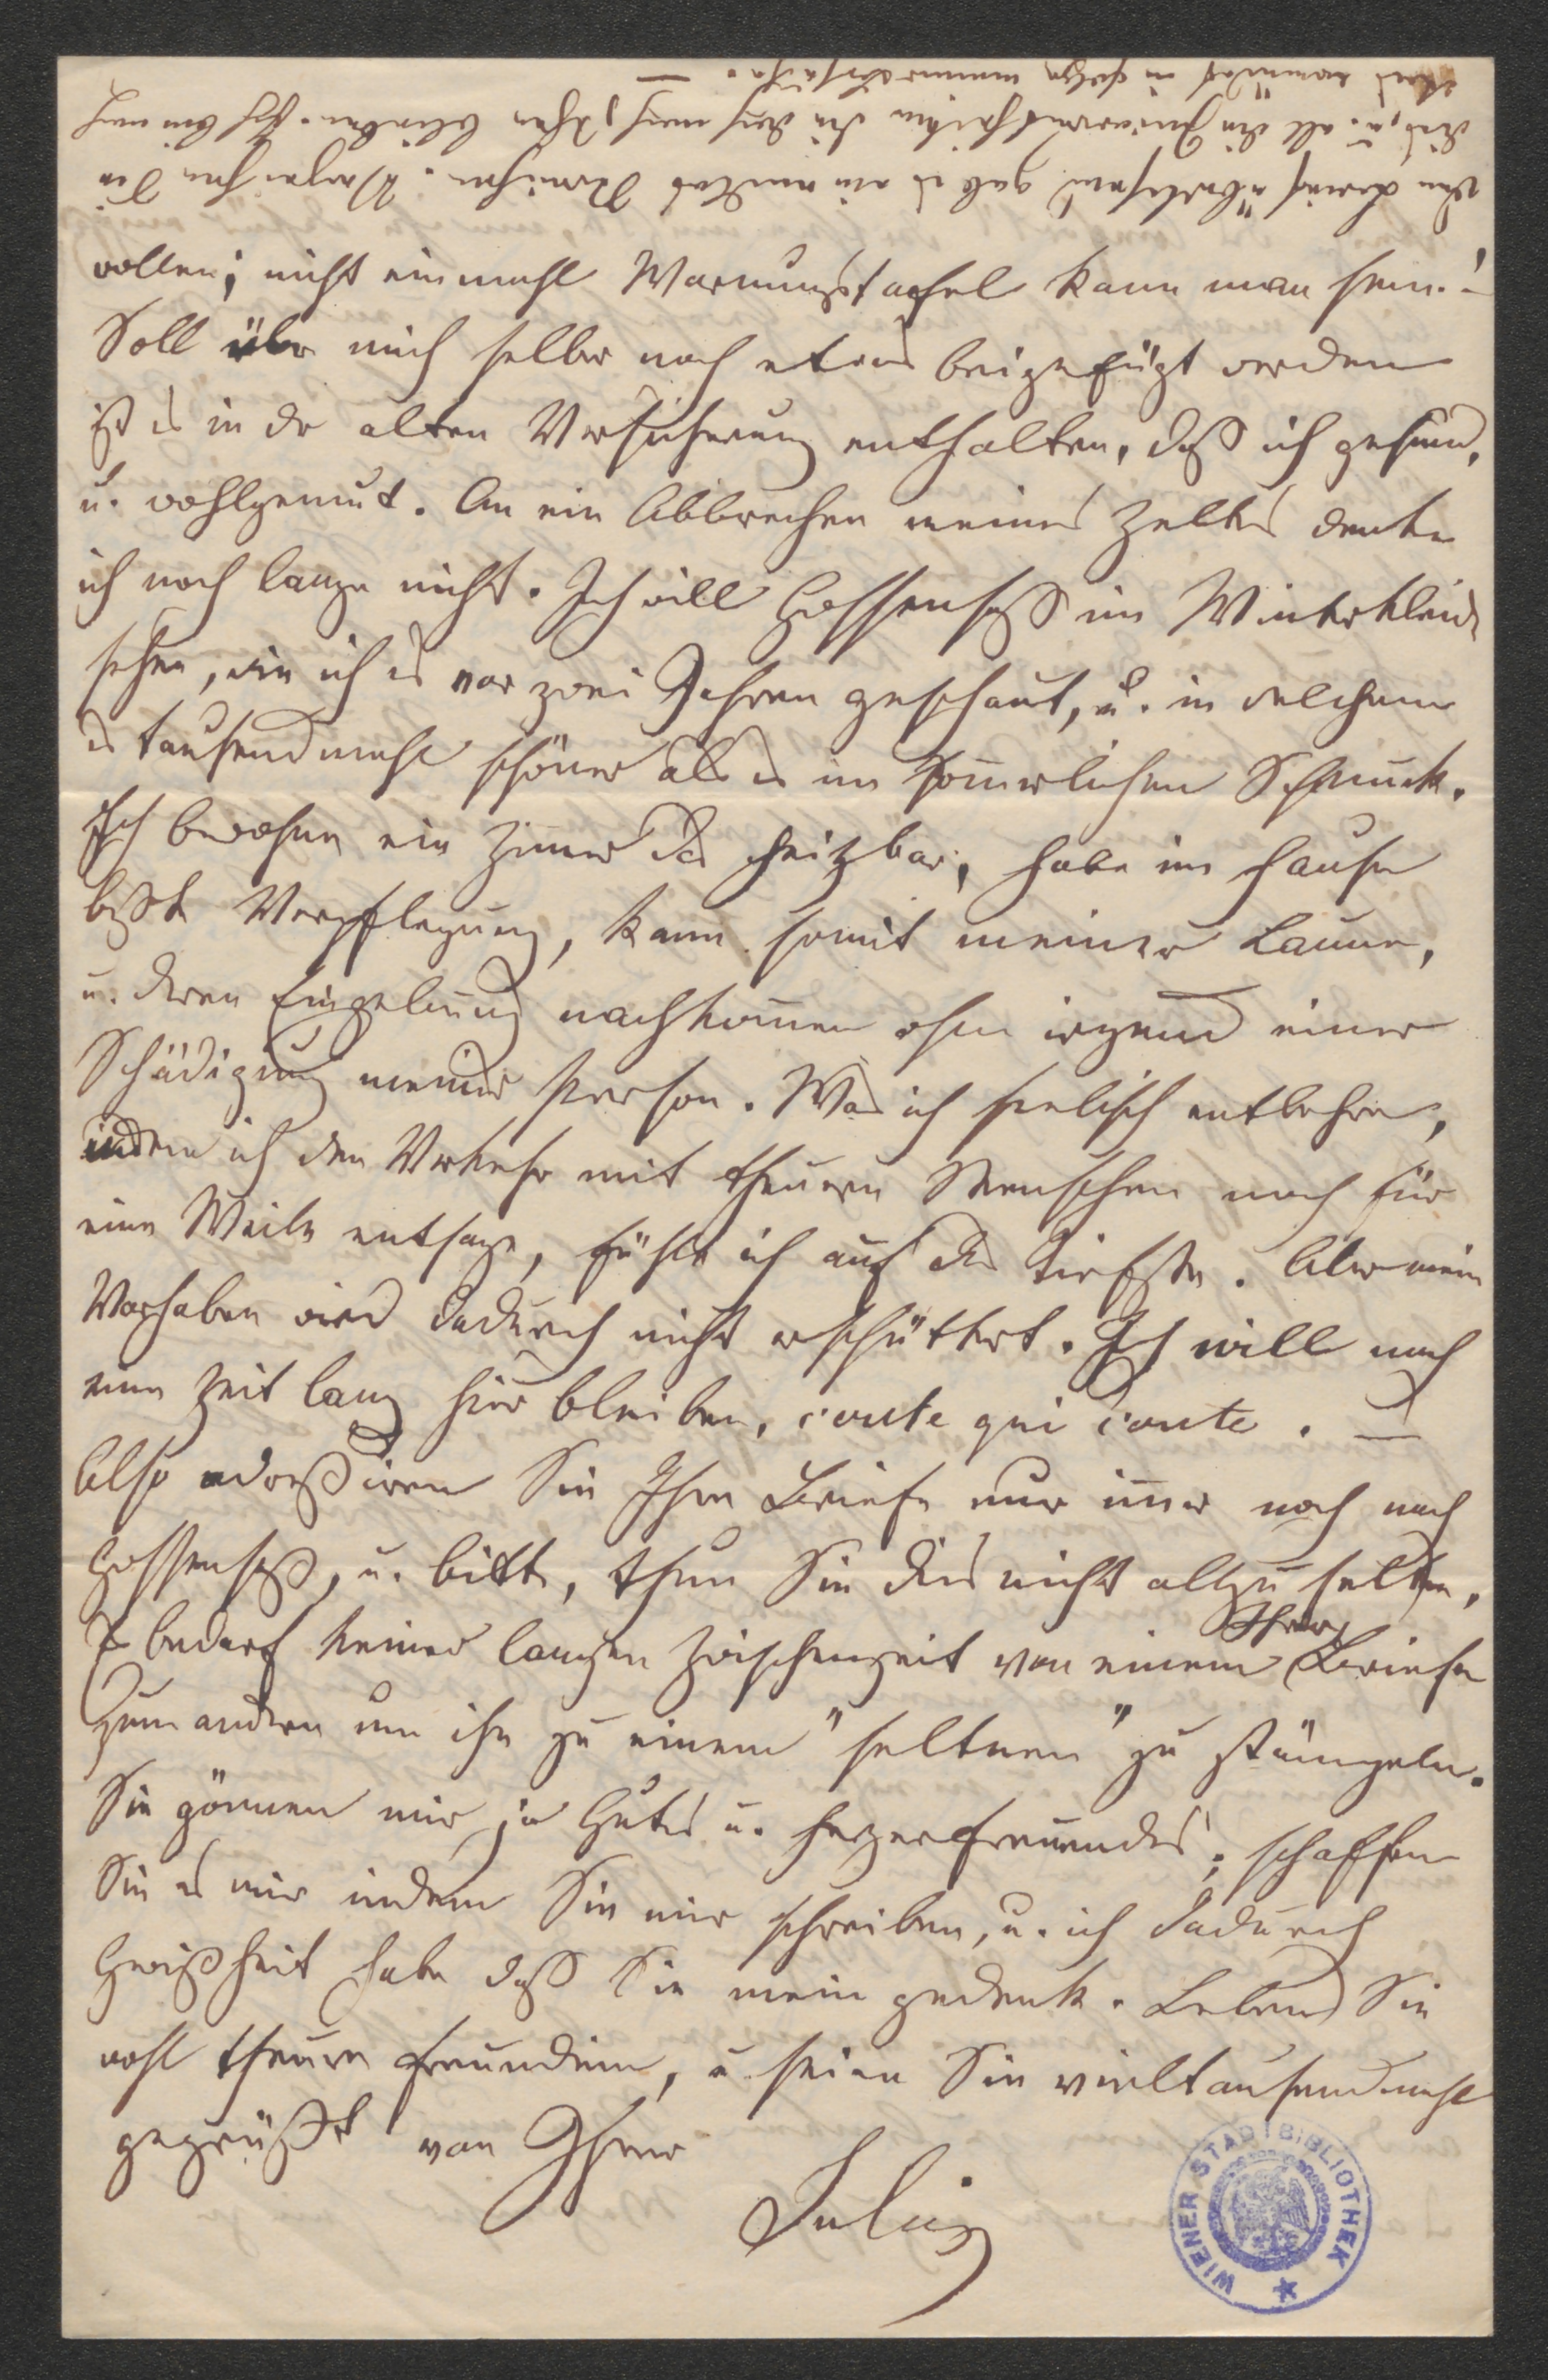 wollen; nicht einmahl Warnungstafel kann man sein!
Soll über mich selber noch etwas beigefügt werden
ist es in der alten Versicherung enthalten, daß ich gesund,
u. wohlgemut. An ein Abbrechen meines Zeltes denke
ich noch lange nicht. Ich will Gossensaß im Winterkleide
sehen, wie ich es vor zwei Jahren geschaut, u. in welchem
es tausendmahl schöner als es im somerlichen Schmuck.
Ich bewohne ein Zimer das heizbar, habe im Hause
beste Verpflegung, kann somit meiner Laune,
u. deren Eingebung nachkomen ohne irgend einer
Schädigung meiner Person. Was ich seelisch entbehre,
indem ich den Verkehr mit theuren Menschen noch für
eine Weile entsage, fühle ich auf das Tiefste. Aber mein
Vorhaben wird dadurch nicht erschüttert. Ich will noch
eine Zeit lang hier bleiben, coute qui coute. —
Also adreßiren Sie Ihre Briefe nur imer noch nach
Gossensaß, u. bitte, thun Sie dies nicht allzu selten,
Es bedarf keiner langen Zwischenzeit von einem Ihrer Briefe
zum andern um ihn zu einem "seltnen" zu stämpeln.
Sie gönnen mir ja Gutes u. Herzerfreuendes; schaffen
Sie es mir indem Sie mir schreiben, u. ich dadurch
Gewißheit habe daß Sie mein gedenk. Leben Sie
wohl theure Freundinn, u. seien Sie vieltausendmahl
gegrüßt von Ihrer
Julie
WIENER STADTBIBLIOTHEK
Den Brief überlesend gab es ein Verzeihen Sie
dies, u. all die die noch, Ihnen bleiben. Ich bin noch